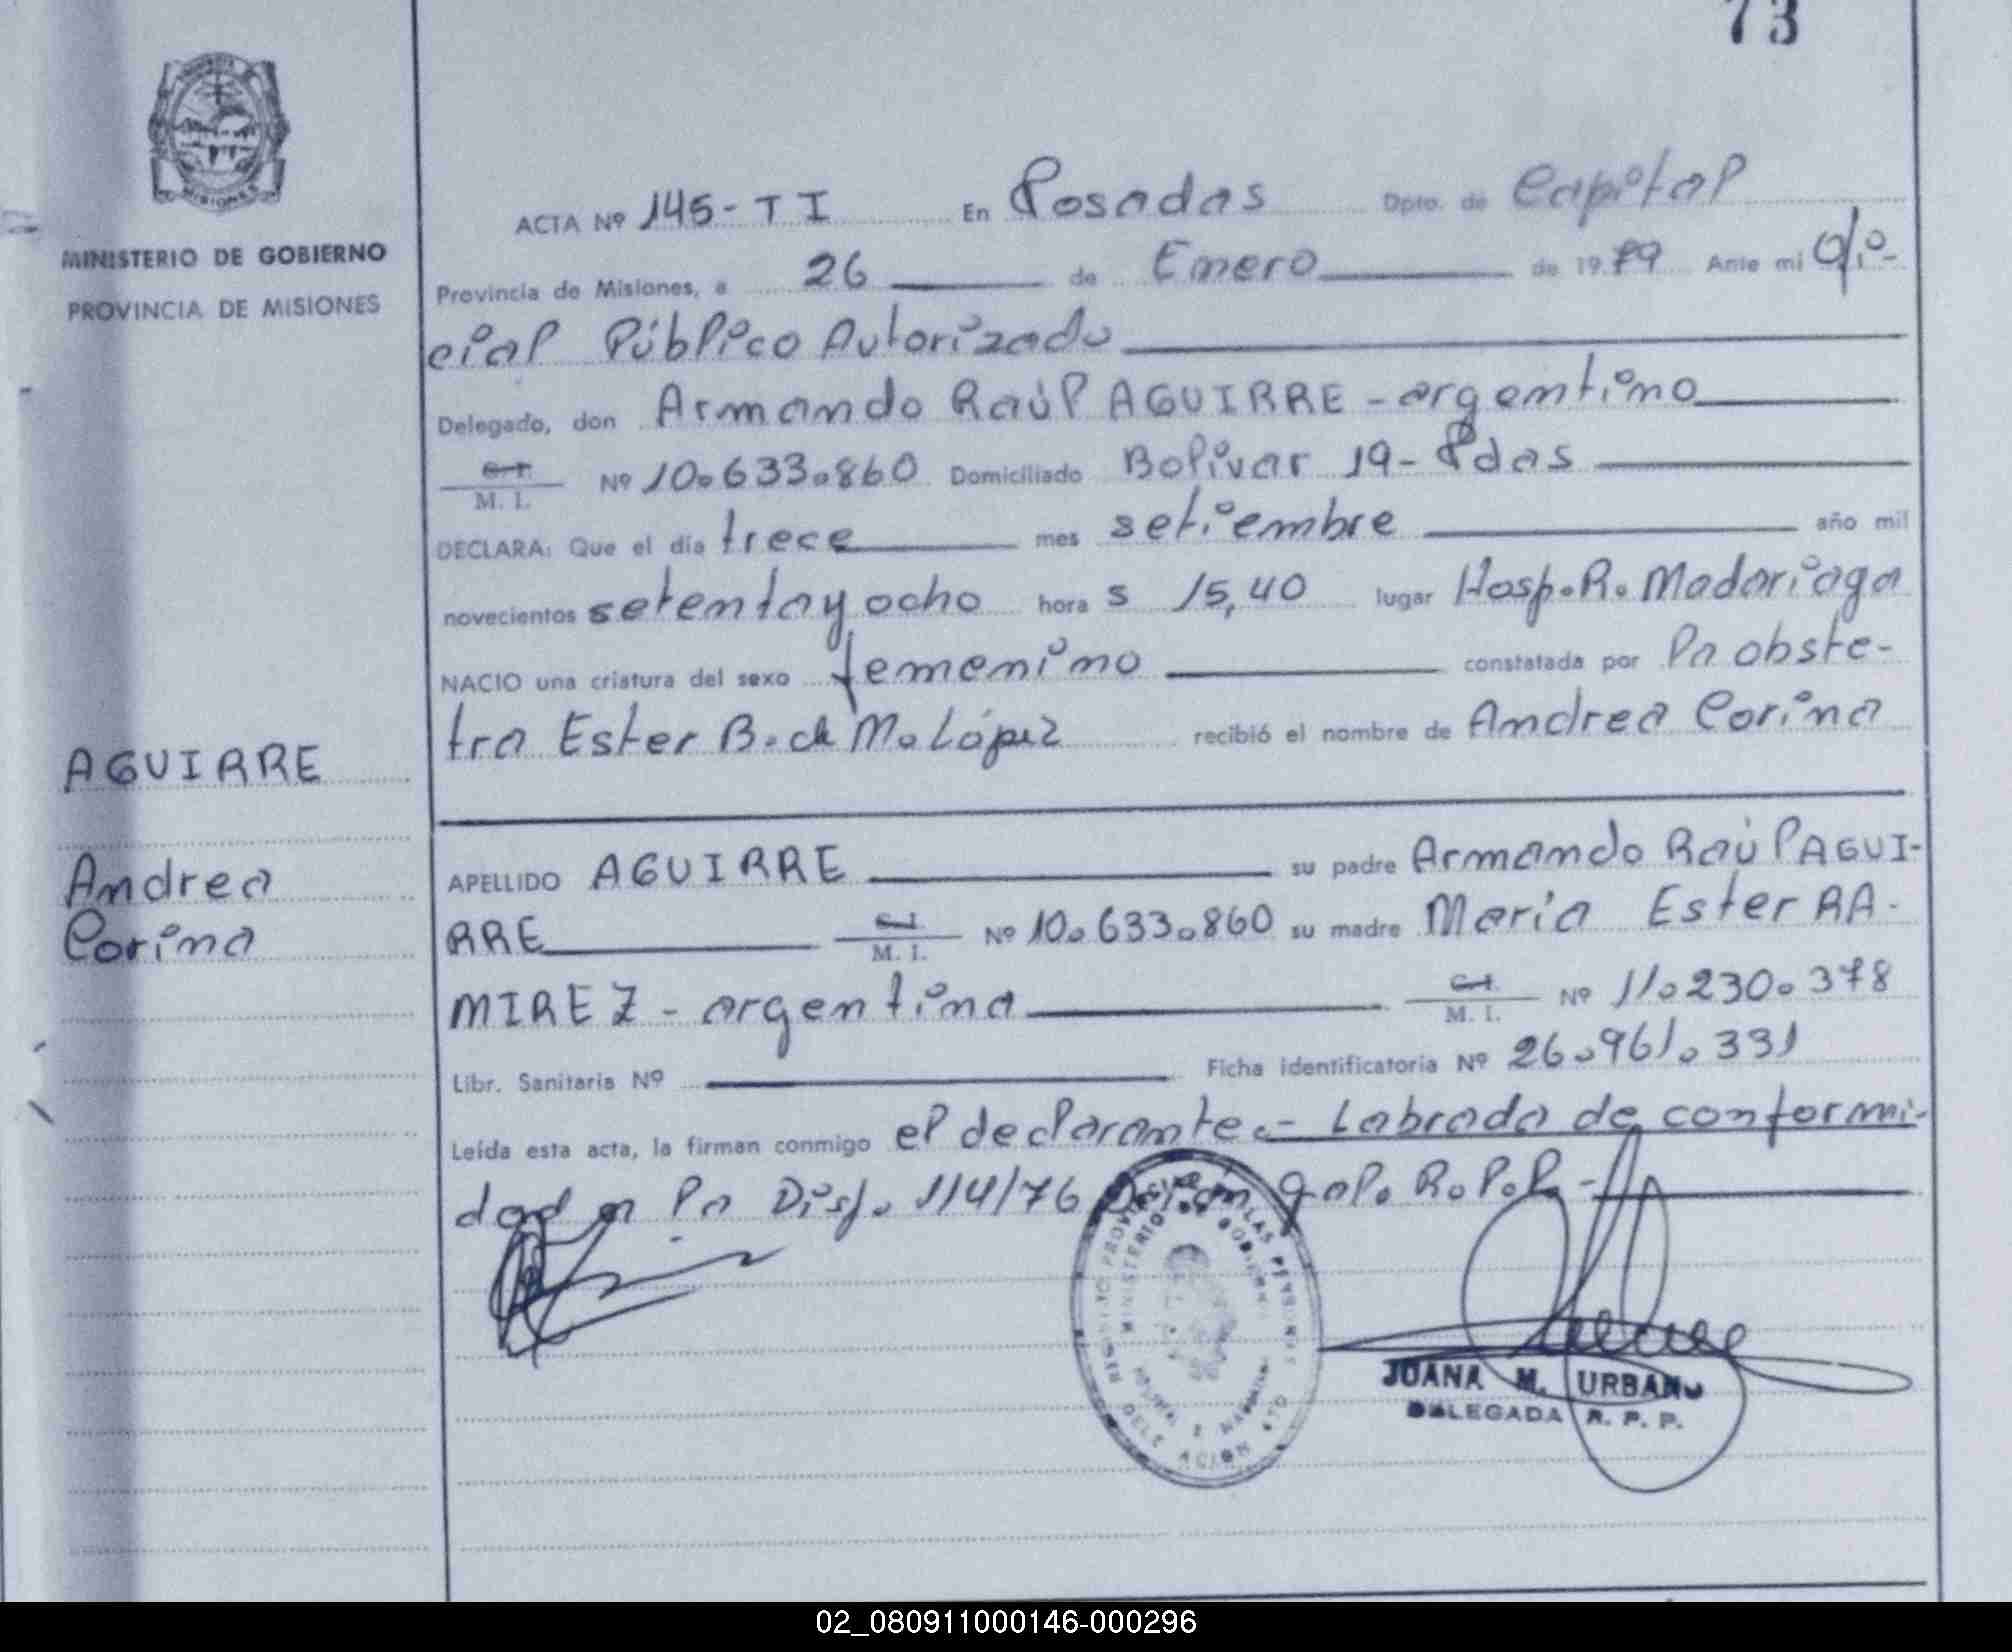 73
MISIONES
MINISTERIO DE GOBIERNO
PROVINCIA DE MISIONES
ACTA Nº 145-TI En Posadas Dpto. de Capital
Provincia de Misiones, a 26 de Enero de 1979 Ante mi Ofi-
cial Público Autorizado
Delegado, don Armando Raúl AGUIRRE - argentino
C.I. M. I. Nº 10.633.860 Domiciliado Bolívar 19 - Pdas
DECLARA: Que el día trece mes setiembre año mil
novecientos setenta y ocho hora s 15,40 lugar Hosp. R. Madariaga
NACIO una criatura del sexo femenino constatada por la obste-
tra Ester B. de M. López recibió el nombre de Andrea Corina
AGUIRRE
Andrea
Corina
APELLIDO AGUIRRE su padre Armando Raúl AGUI-
RRE C.I. M. I. Nº 10.633.860 su madre María Ester RA-
MIREZ - argentina C.I. M. I. Nº 11.230.378
Libr. Sanitaria Nº Ficha identificatoria Nº 26.961.331
Leída esta acta, la firman conmigo el declarante.- Labrada de conformi-
dad a la Disp. 114/76 Gral. R.P.P.-
MINISTERIO DE GOBIERNO
DELEGACION
JUANA M. URBANO
DELEGADA R. P. P.
02_080911000146-000296